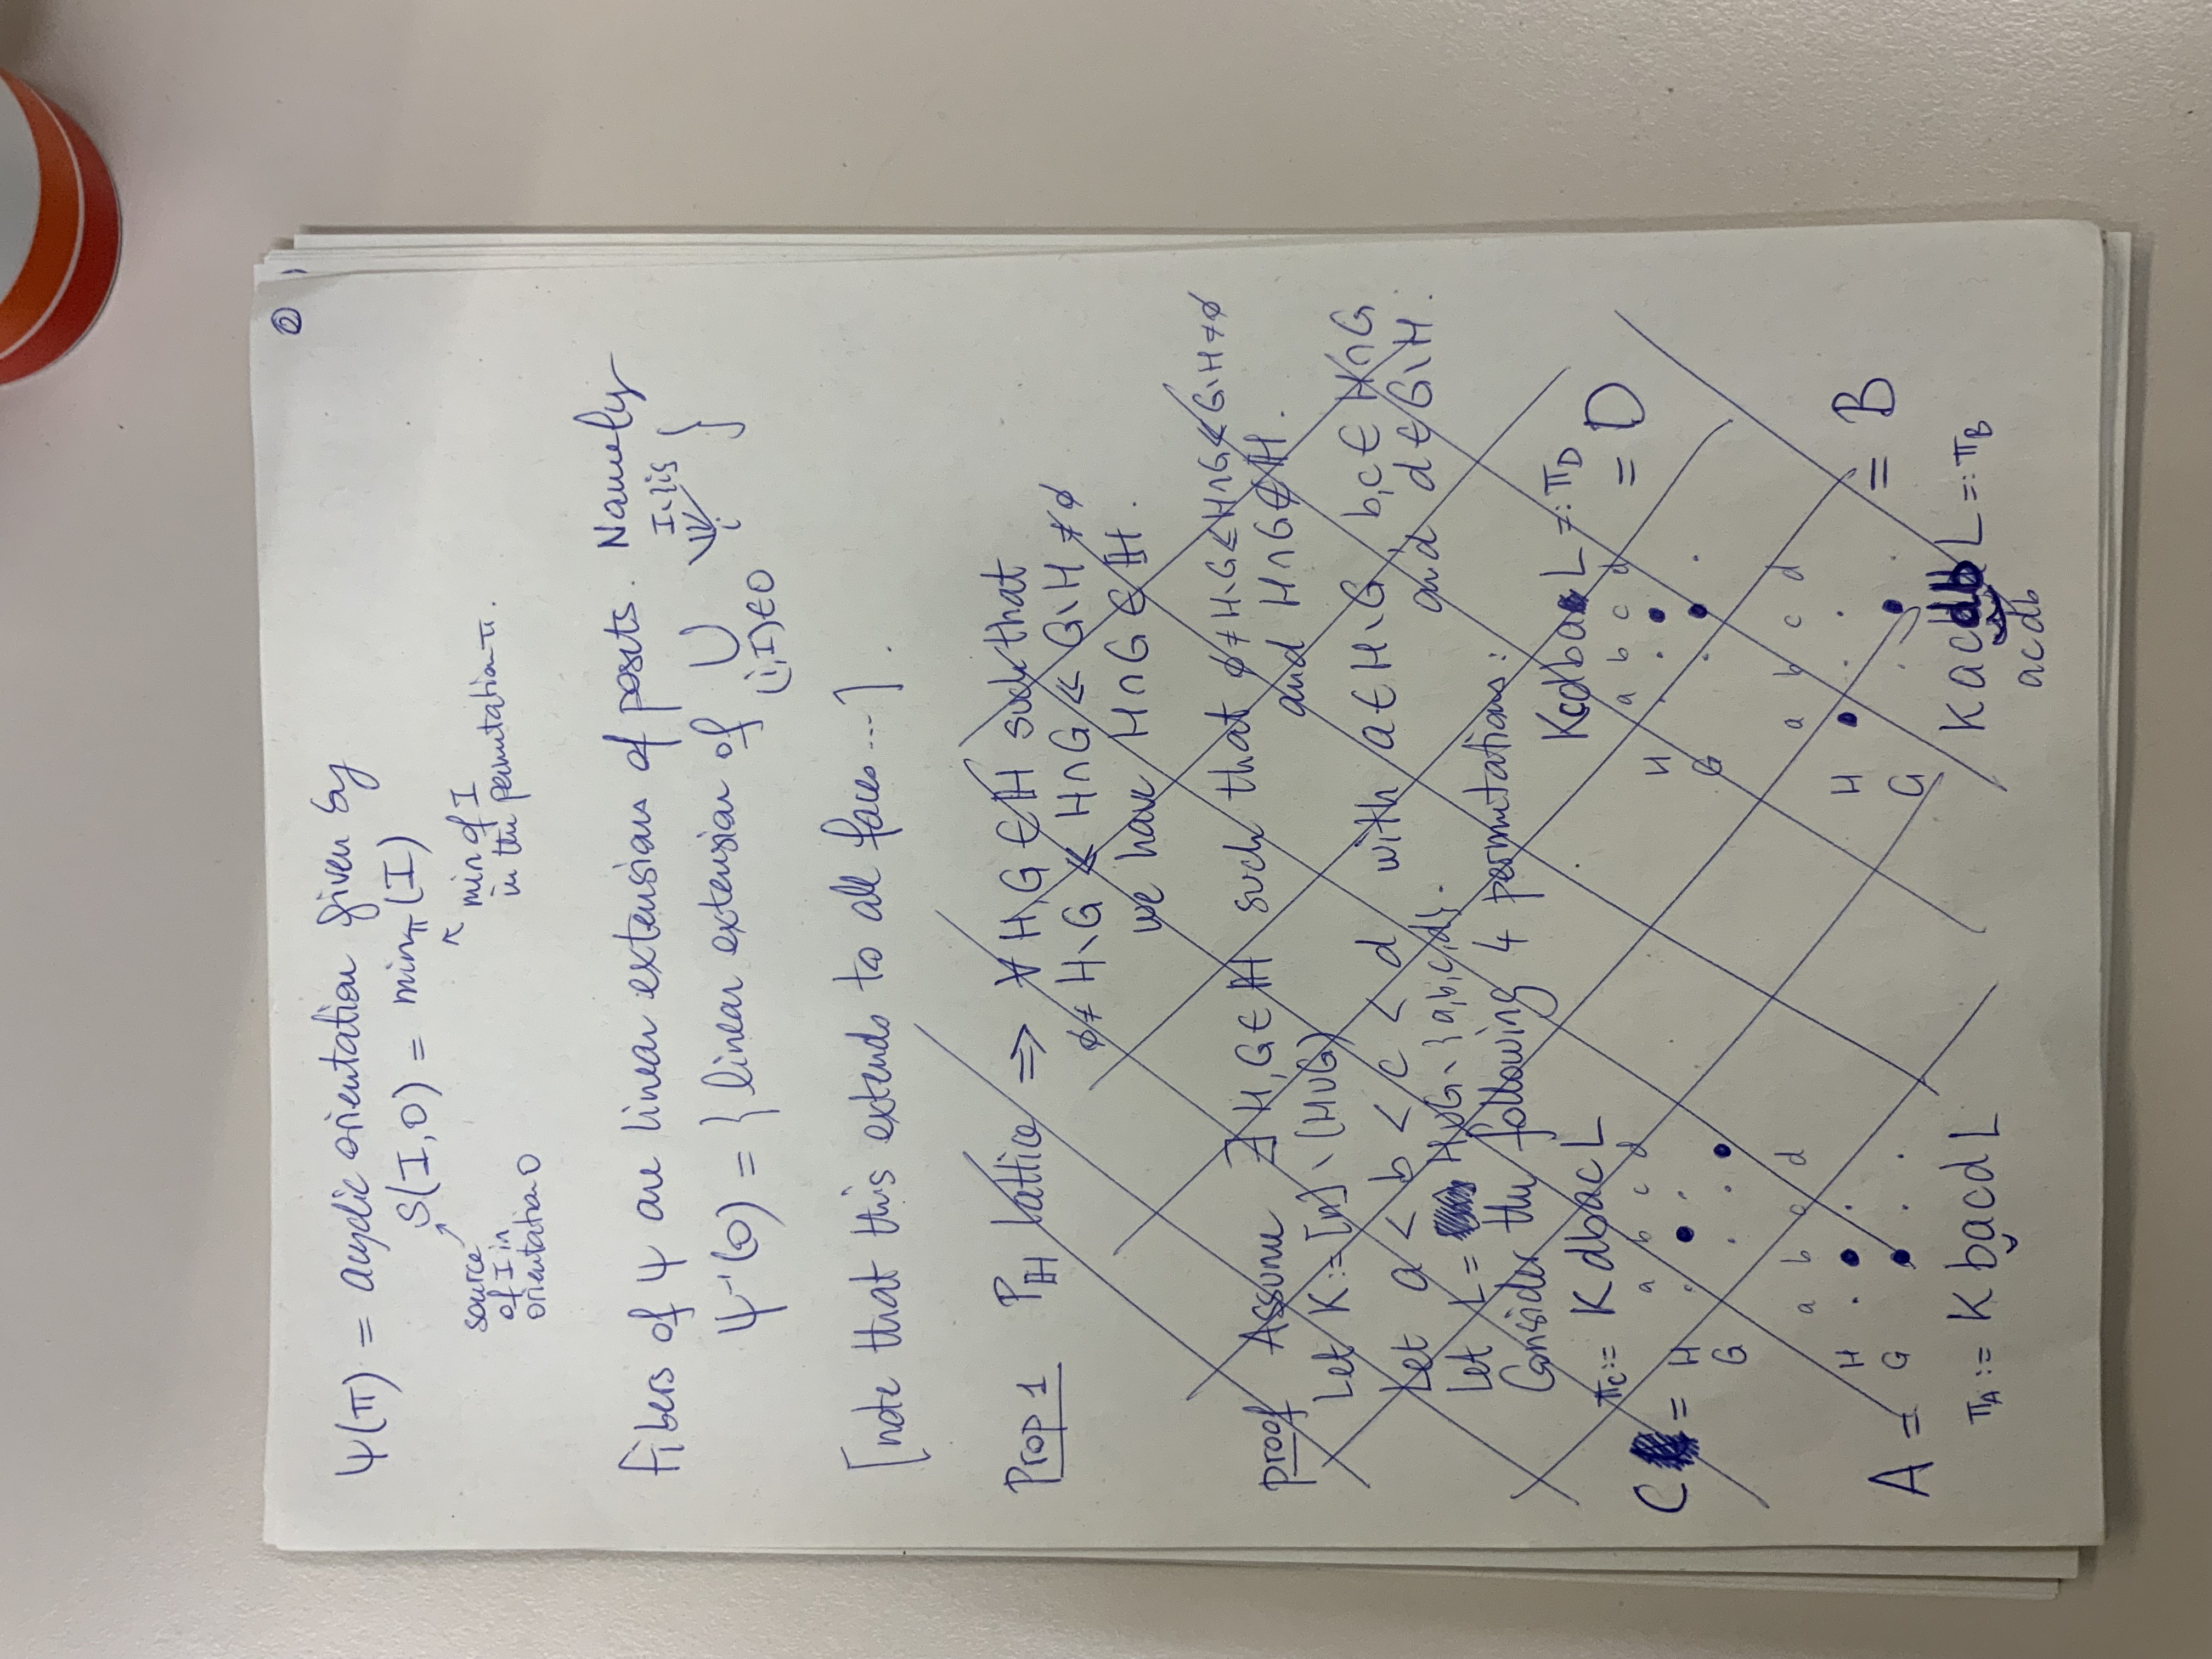 ②
Ψ(π) = acyclic orientation given by
S(I,O) = min_π(I)
source of I in orientation O
min of I in the permutation π.
fibers of Ψ are linear extensions of posets. Namely
Ψ⁻¹(O) = { linear extension of ⋃_{(i,I)∈O} I∖{i} i }
[note that this extends to all faces....].
Prop 1 P_ℍ lattice ⇒ ∀ H,G ∈ ℍ such that
∅ ≠ H∖G ≪ H∩G ≪ G∖H ≠ ∅
we have H∩G ∈ ℍ.
proof Assume ∃ H,G ∈ ℍ such that ∅ ≠ H∖G ≪ H∩G ≪ G∖H ≠ ∅
and H∩G ∉ ℍ.
Let K := [n]∖(H∪G)
Let a < b < c < d with a ∈ H∖G b,c ∈ H∩G
and d ∈ G∖H.
Let L = H∪G∖{a,b,c,d}.
Consider the following 4 permutations:
π_C := KdbacL KcdbaL =: π_D
a b c d a b c d
C = H H = D
G G
a b c d a b c d
A = H H = B
G G
π_A := KbacdL KacdbL =: π_B
acdb